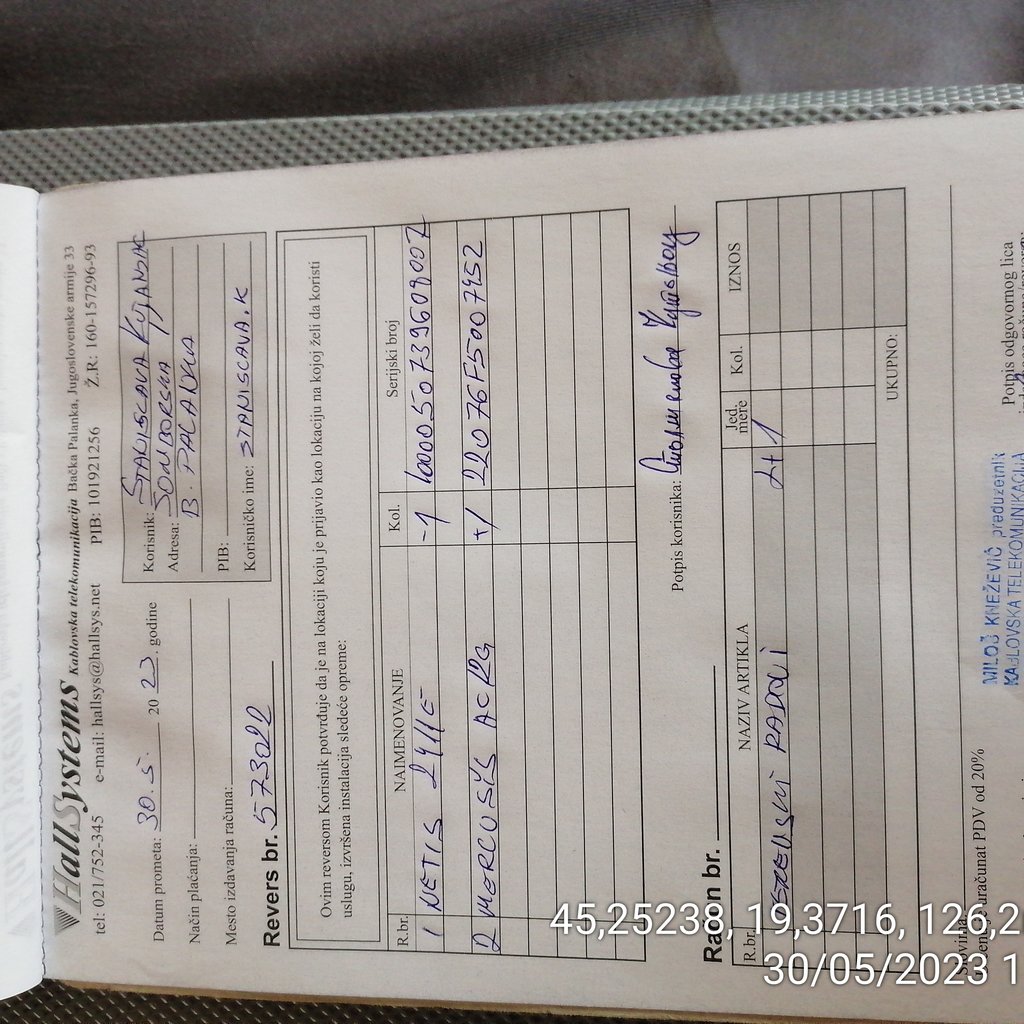 HallSystems Kablovska telekomunikacija Bačka Palanka, Jugoslovenske armije 33
tel: 021/752-345 e-mail: hallsys@hallsys.net PIB: 101921256 Ž.R: 160-157296-93
Datum prometa: 30.5 2023. godine
Način plaćanja:
Mesto izdavanja računa:
Revers br. 573022
Korisnik: STANISLAVA KUJANDŽIĆ
Adresa: SOMBORSKA
B. PALANKA
PIB:
Korisničko ime: STANISLAVA.K
Ovim reversom Korisnik potvrđuje da je na lokaciji koju je prijavio kao lokaciju na kojoj želi da koristi
uslugu, izvršena instalacija sledeće opreme:
R.br. NAIMENOVANJE Kol. Serijski broj
1 NETIS 2411E -1
2 MERCUSYS AC12G +1 22076F5007952
Potpis korisnika:
Račun br.
R.br. NAZIV ARTIKLA Jed. mere Kol. IZNOS
RADOVI 1+1
UKUPNO:
uračunat PDV od 20%
MILOŠ KNEŽEVIĆ preduzetnik
KABLOVSKA TELEKOMUNIKACIJA
Potpis odgovornog lica
45,25238, 19,3716, 126,2
30/05/2023 1